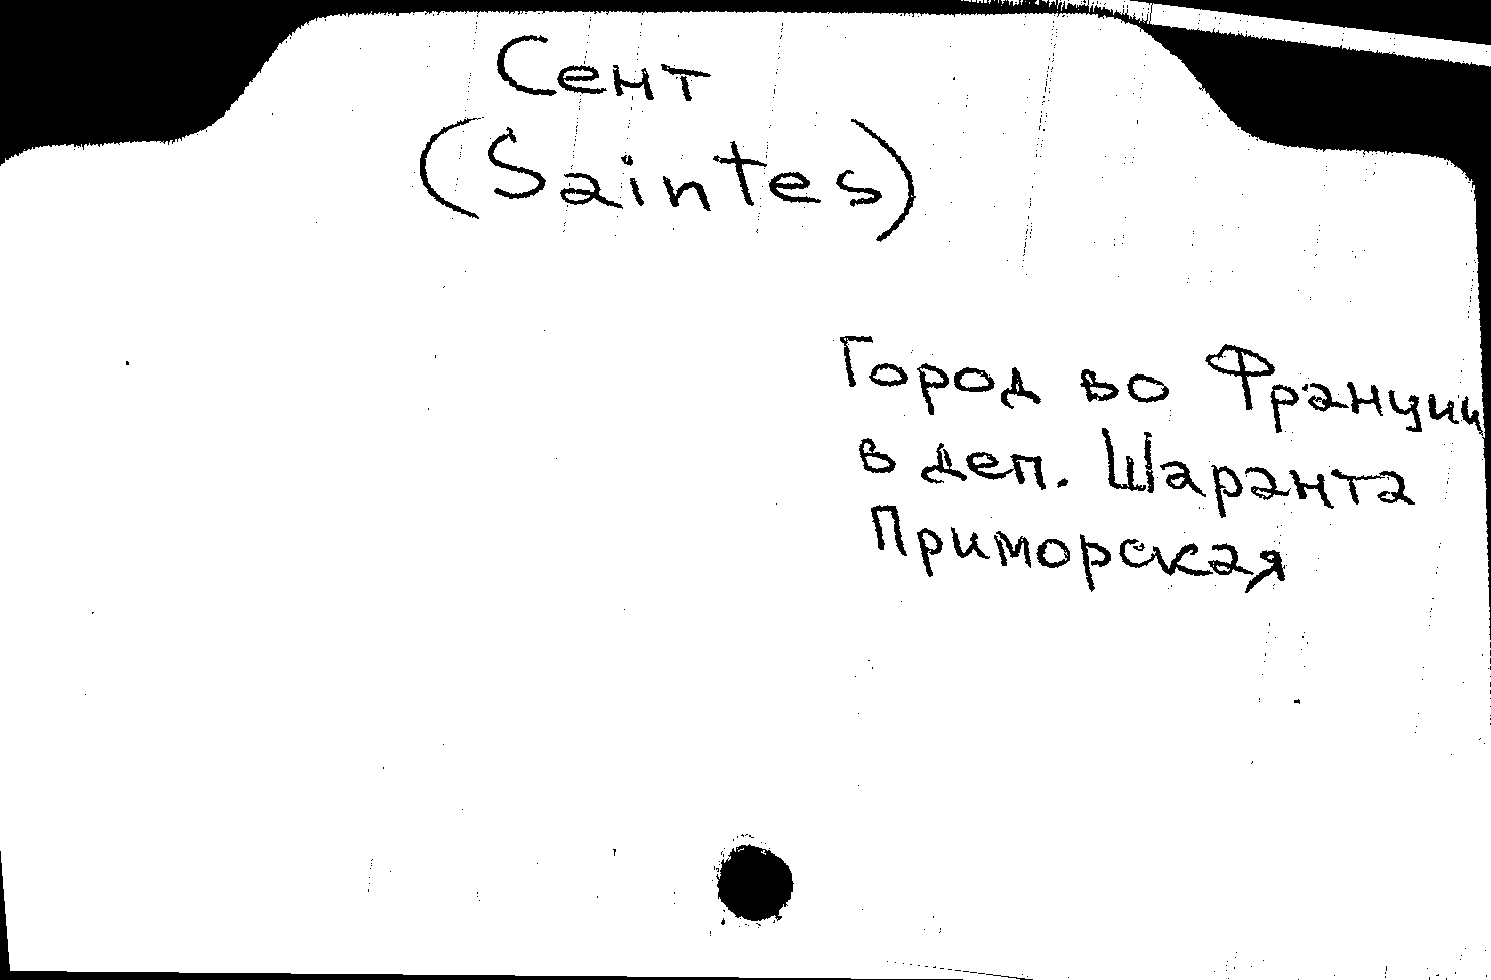 Сент
(Saintes)
Город во Франции
в деп. Шаранта
Приморская